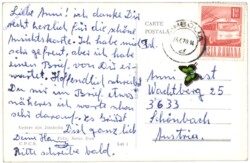 Liebe Anni! ich danke Dir
recht herzlich für die schöne
Ansichtskarte. Ich habe mich
sehr gefreut, aber ich habe
einen Brief, von Dir er-
wartet. Hoffendlich schreibst
Du mir im Brief etwas
näheres ich warte schon
sehr darauf. Es küsst
Dich ganz lieb
Deine
Bitte schreibe bald.
CARTE
POSTALE
Anni
Wachtberg 25
3633
Schönbach
Austria